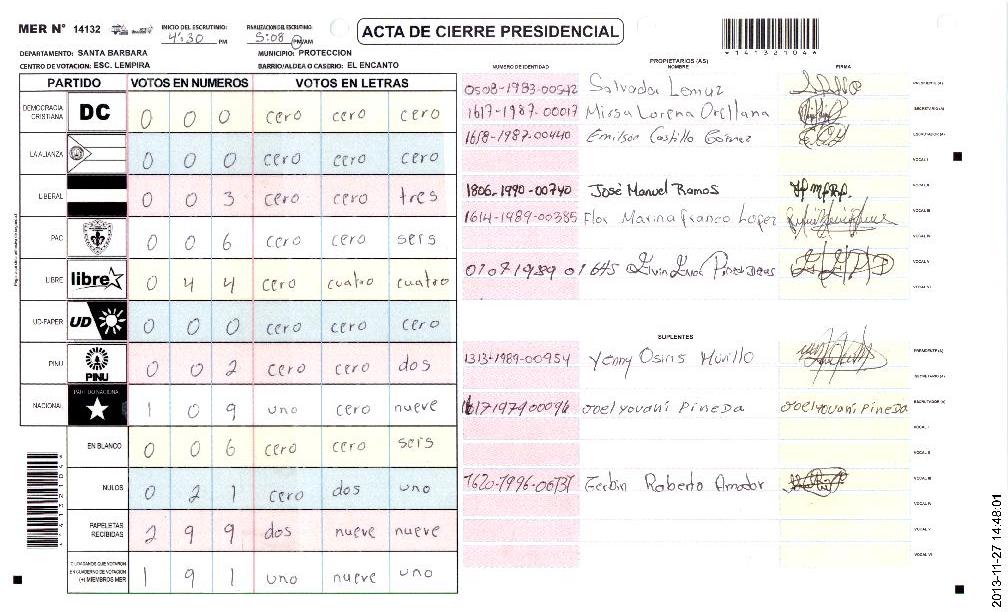 MER Nº 14132 INICIO DEL ESCRUTINIO: 4:30 PM FINALIZACION DEL ESCRUTINIO: 5:08 PM/AM
ACTA DE CIERRE PRESIDENCIAL
*14132104*
DEPARTAMENTO: SANTA BARBARA MUNICIPIO: PROTECCION
CENTRO DE VOTACION: ESC. LEMPIRA BARRIO/ALDEA O CASERIO: EL ENCANTO
PARTIDO VOTOS EN NUMEROS VOTOS EN LETRAS
DEMOCRACIA CRISTIANA DC 0 0 0 cero cero cero
LA ALIANZA 0 0 0 cero cero cero
LIBERAL 0 0 3 cero cero tres
PAC 0 0 6 cero cero seis
LIBRE libre 0 4 4 cero cuatro cuatro
UD-FAPER UD 0 0 0 cero cero cero
PINU PINU 0 0 2 cero cero dos
NACIONAL PARTIDO NACIONAL 1 0 9 uno cero nueve
EN BLANCO 0 0 6 cero cero seis
NULOS 0 2 1 cero dos uno
PAPELETAS RECIBIDAS 2 9 9 dos nueve nueve
CIUDADANOS QUE VOTARON EN CUADERNO DE VOTACION (+) MIEMBROS MER 1 9 1 uno nueve uno
PROPIETARIOS (AS)
NUMERO DE IDENTIDAD NOMBRE FIRMA
0508-1983-00542 Salvador Lemuz PRESIDENTE (A)
1617-1987-00017 Mirsa Lorena Orellana SECRETARIO (A)
1618-1987-00440 Emilson Castillo Gómez ESCRUTADOR (A)
VOCAL I
1806-1990-00740 José Manuel Ramos VOCAL II
1614-1989-00385 Flor Marina Franco Lopez VOCAL III
VOCAL IV
0107 1989 01645 VOCAL V
VOCAL VI
SUPLENTES
1313-1989-00954 Yenny Osiris Murillo PRESIDENTE (A)
SECRETARIO (A)
1617197400096 Joel yovani Pineda Joel yovani Pineda ESCRUTADOR (A)
VOCAL I
VOCAL II
1620-1996-00131 Ferbin Roberto Amador VOCAL III
VOCAL IV
VOCAL V
VOCAL VI
2013-11-27 14:48:01